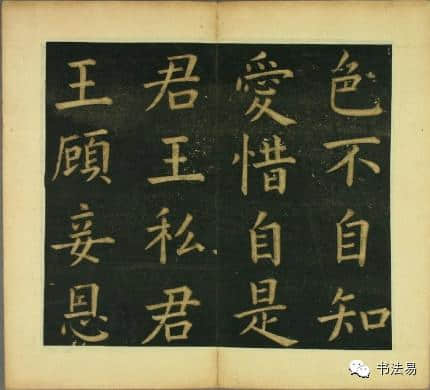 色不自知
愛惜自是
君王私君
王顧妾恩
书法易